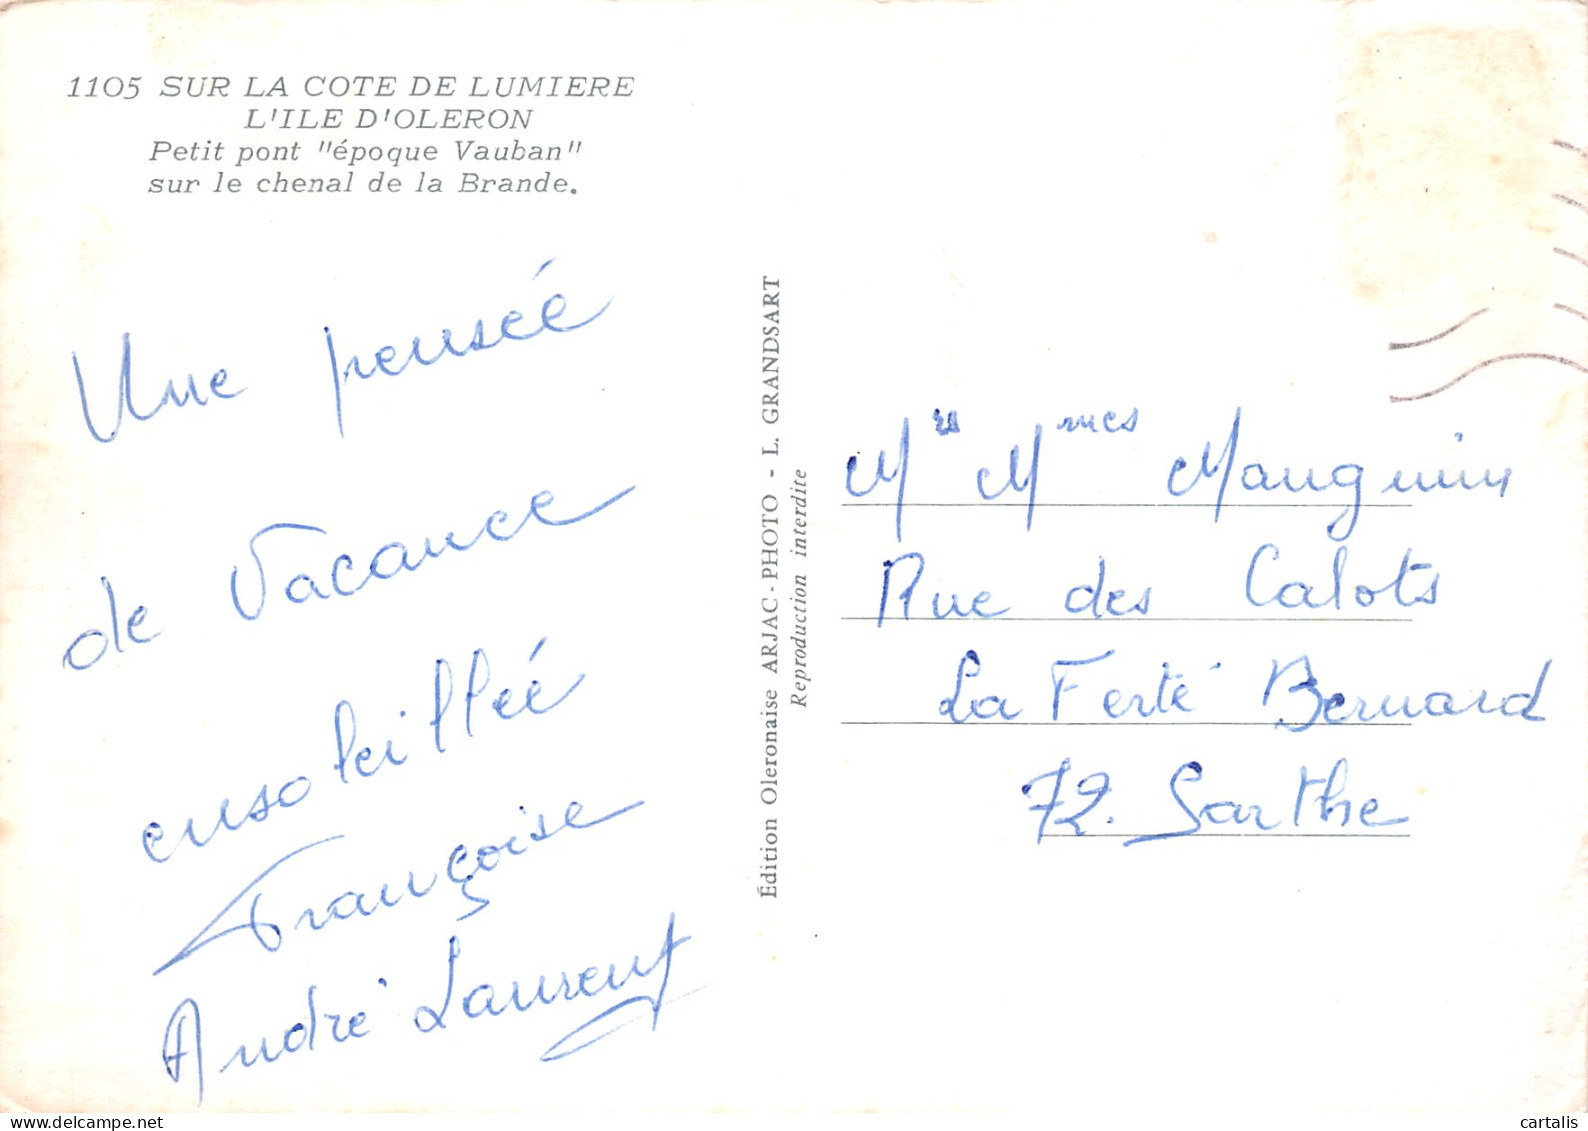 1105 SUR LA COTE DE LUMIERE
L'ILE D'OLERON
Petit pont "époque Vauban"
sur le chenal de la Brande.
Une pensée
de Vacance
ensoleillée
Françoise
André Laurent
Édition Oleronaise ARJAC-PHOTO - L. GRANDSART
Reproduction interdite
Mrs Mmes Mauguin
Rue des Calots
La Ferté Bernard
72. Sarthe
cartalis